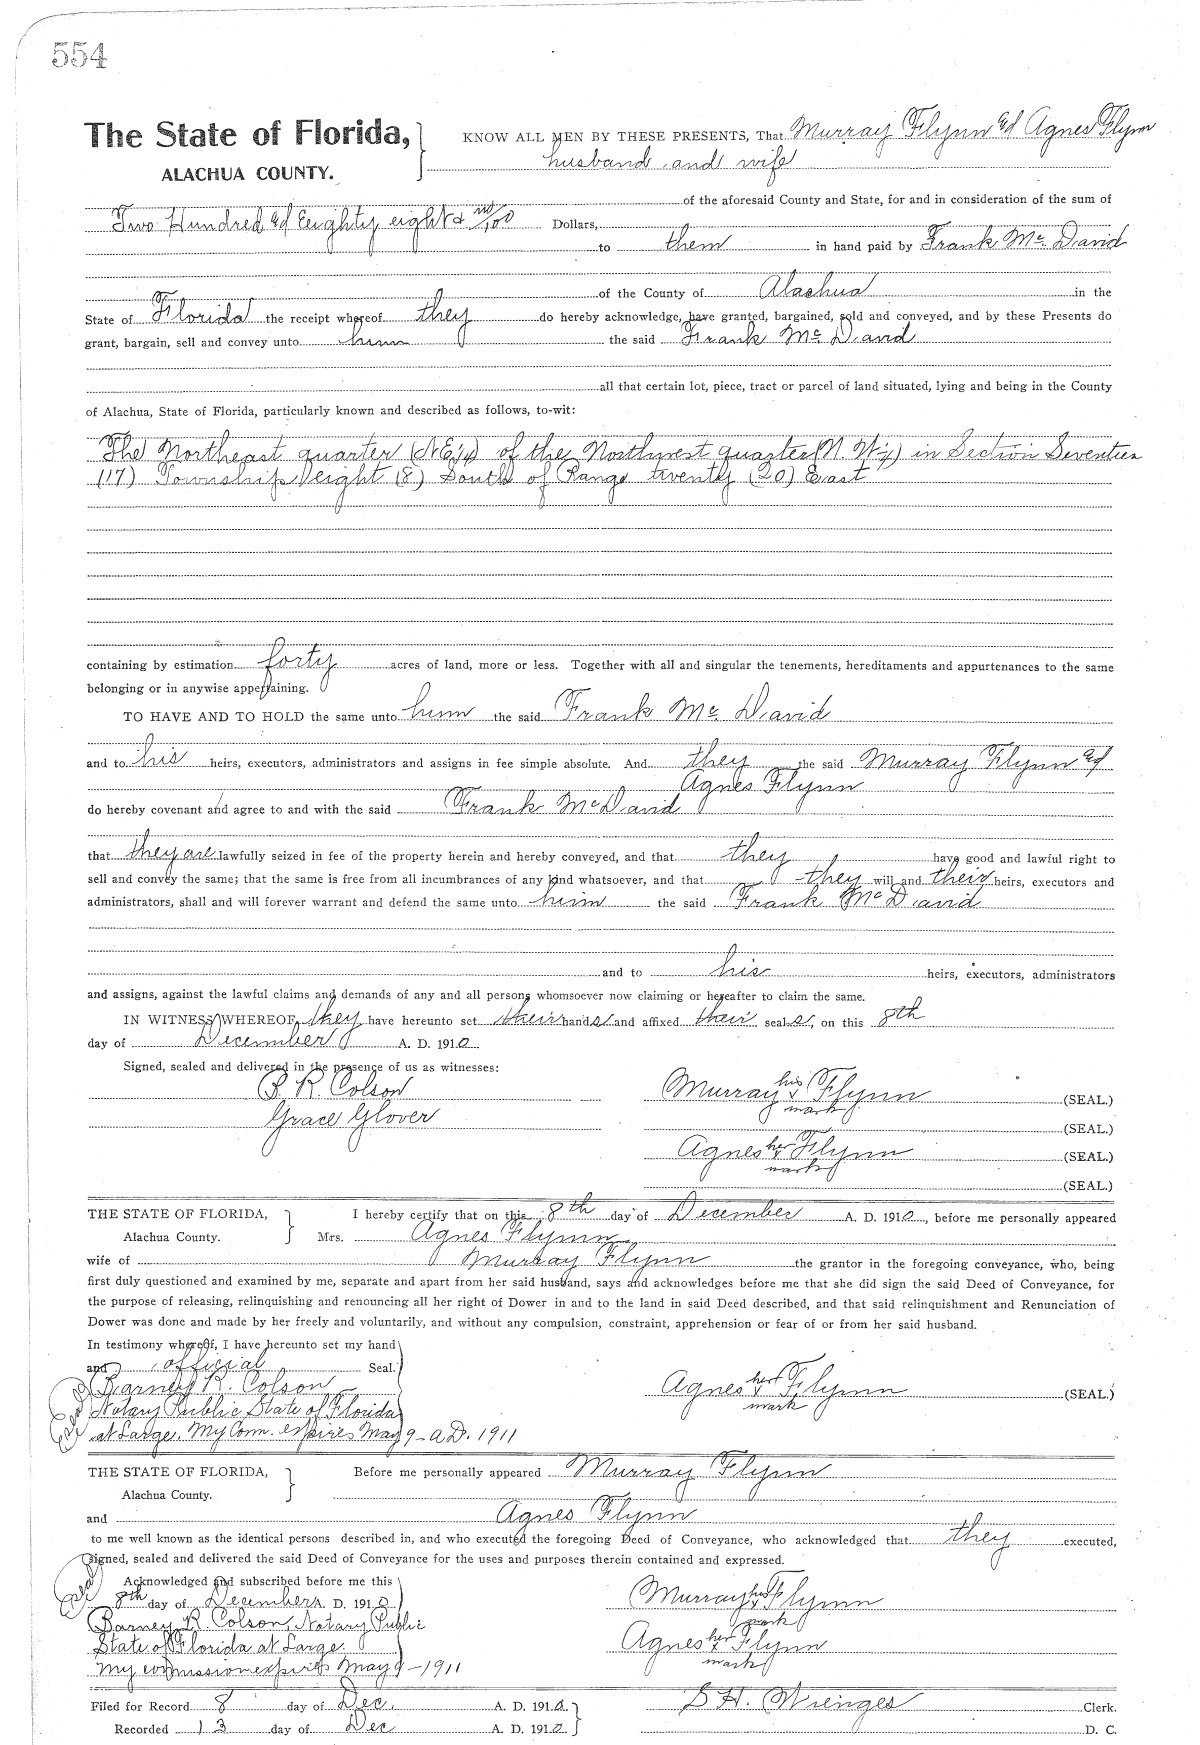 554
The State of Florida,
ALACHUA COUNTY.
KNOW ALL MEN BY THESE PRESENTS, That Murray Flynn & Agnes Flynn
husband and wife
of the aforesaid County and State, for and in consideration of the sum of
Two Hundred & Eighty eight & no/100 Dollars,
to them in hand paid by Frank Mc David
of the County of Alachua in the
State of Florida the receipt whereof they do hereby acknowledge, have granted, bargained, sold and conveyed, and by these Presents do
grant, bargain, sell and convey unto him the said Frank Mc David
all that certain lot, piece, tract or parcel of land situated, lying and being in the County
of Alachua, State of Florida, particularly known and described as follows, to-wit:
The Northeast quarter (NE¼) of the Northwest quarter (N.W¼) in Section Seventeen
(17) Township eight (8) South of Range twenty (20) East
containing by estimation forty acres of land, more or less. Together with all and singular the tenements, hereditaments and appurtenances to the same
belonging or in anywise appertaining.
TO HAVE AND TO HOLD the same unto him the said Frank Mc David
and to his heirs, executors, administrators and assigns in fee simple absolute. And they the said Murray Flynn &
Agnes Flynn
do hereby covenant and agree to and with the said Frank McDavid
that they are lawfully seized in fee of the property herein and hereby conveyed, and that they have good and lawful right to
sell and convey the same; that the same is free from all incumbrances of any kind whatsoever, and that they will and their heirs, executors and
administrators, shall and will forever warrant and defend the same unto him the said Frank McDavid
and to his heirs, executors, administrators
and assigns, against the lawful claims and demands of any and all persons whomsoever now claiming or hereafter to claim the same.
IN WITNESS WHEREOF, they have hereunto set their hands and affixed their seals, on this 8th
day of December A. D. 1910
Signed, sealed and delivered in the presence of us as witnesses:
B. R. Colson
Grace Glover
Murray his x mark Flynn (SEAL.)
(SEAL.)
Agnes her x mark Flynn (SEAL.)
(SEAL.)
THE STATE OF FLORIDA,
Alachua County.
I hereby certify that on this 8th day of December A. D. 1910, before me personally appeared
Mrs. Agnes Flynn
wife of Murray Flynn the grantor in the foregoing conveyance, who, being
first duly questioned and examined by me, separate and apart from her said husband, says and acknowledges before me that she did sign the said Deed of Conveyance, for
the purpose of releasing, relinquishing and renouncing all her right of Dower in and to the land in said Deed described, and that said relinquishment and Renunciation of
Dower was done and made by her freely and voluntarily, and without any compulsion, constraint, apprehension or fear of or from her said husband.
In testimony whereof, I have hereunto set my hand
and official Seal.
Barney R. Colson
Notary Public State of Florida
at Large. My Com. expires May 9 - A.D. 1911
(Seal)
Agnes her x mark Flynn (SEAL.)
THE STATE OF FLORIDA,
Alachua County.
Before me personally appeared Murray Flynn
and Agnes Flynn
to me well known as the identical persons described in, and who executed the foregoing Deed of Conveyance, who acknowledged that they executed,
signed, sealed and delivered the said Deed of Conveyance for the uses and purposes therein contained and expressed.
(Seal)
Acknowledged and subscribed before me this
8th day of December A. D. 1910
Barney R. Colson, Notary Public
State of Florida at Large.
My commission expires May 9 - 1911
Murray his x mark Flynn
Agnes her x mark Flynn
Filed for Record 8 day of Dec. A. D. 1910
Recorded 13 day of Dec A. D. 1910
S. H. Wienges Clerk.
D. C.